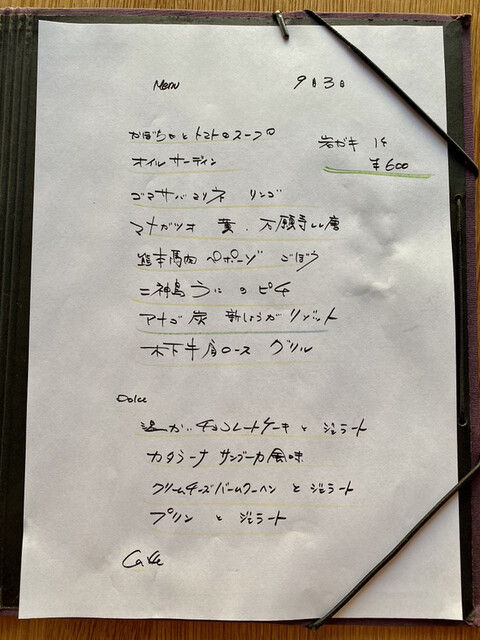 Menu
9月3日
かぼちゃとトマトのスープ
岩ガキ 1ケ
¥600
オイルサーディン
ゴマサバマリネ リンゴ
マナガツオ 藁、万願寺しし唐
熊本馬肉 ペポーゾ ごぼう
二神島うにのピチ
アナゴ炭 新しょうがリゾット
木下牛肩ロース グリル
Dolce
温かいチョコレートケーキとジェラート
カタラーナ サンブーカ風味
クリームチーズバームクーヘンとジェラート
プリンとジェラート
Caffe